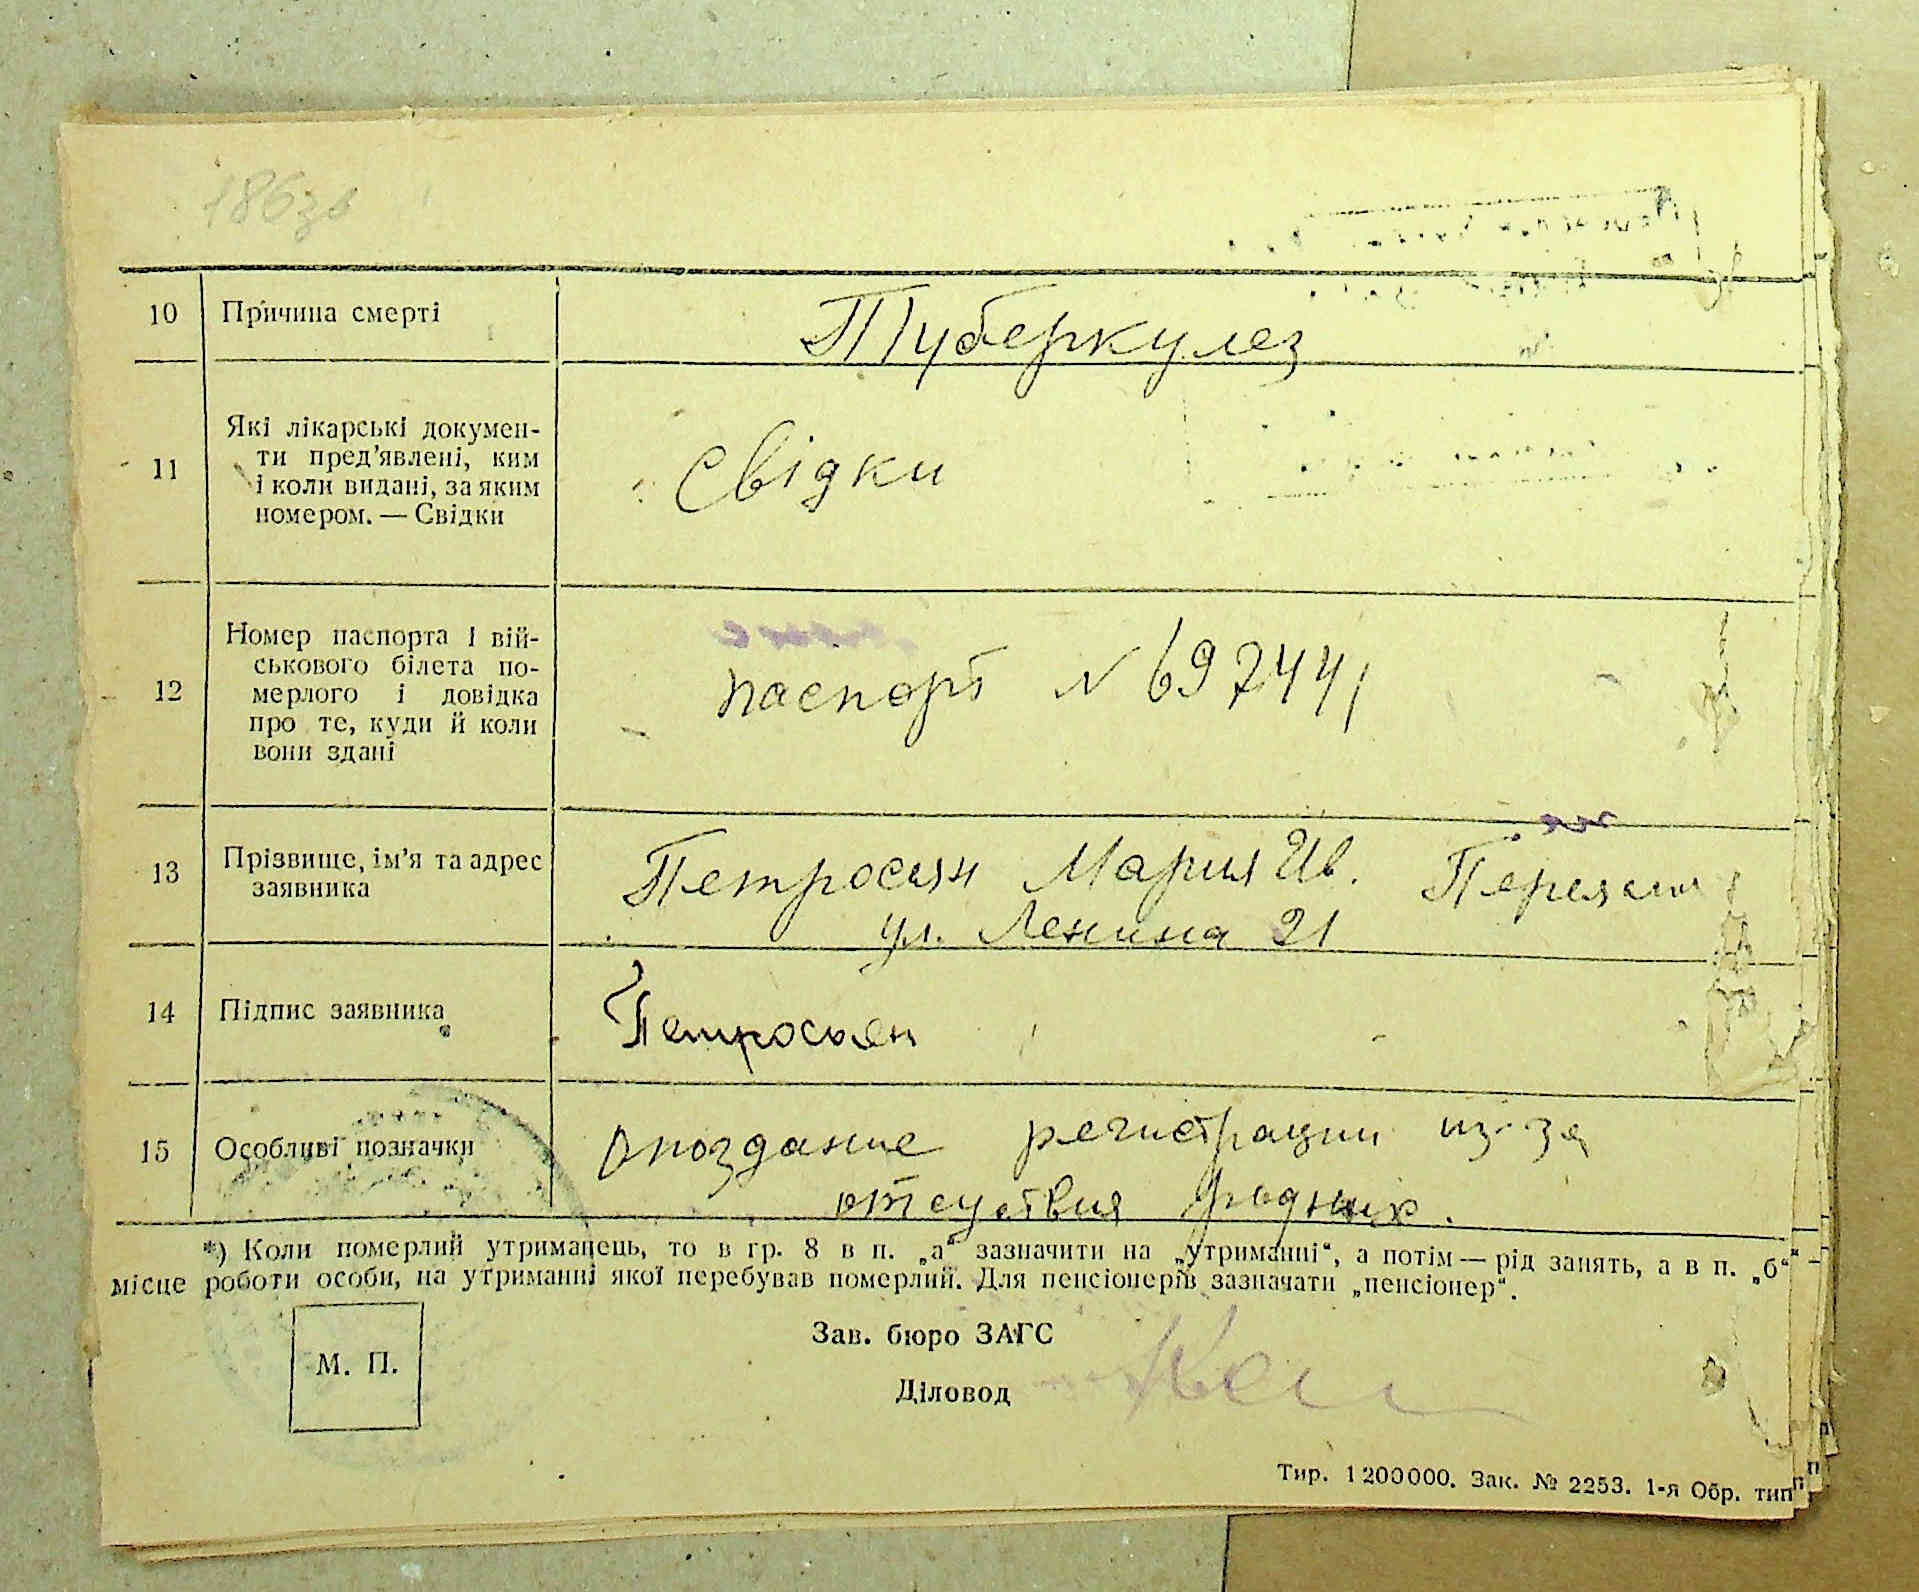 186зв
10 Причина смерті Туберкулез
11 Які лікарські докумен-
ти пред'явлені, ким
і коли видані, за яким
номером. — Свідки
Свідки
12 Номер паспорта і вій-
ськового білета по-
мерлого і довідка
про те, куди й коли
вони здані
паспорт N 697441
13 Прізвище, ім'я та адрес
заявника
Петросян Мария Ив.
ул. Ленина 21
14 Підпис заявника Петросьян
15 Особливі позначки
Опоздание регистрации из-за
отсуствия родных.
*) Коли померлий утриманець, то в гр. 8 в п. „а“ зазначити на „утриманні“, а потім — рід занять, а в п. „б“ –
місце роботи особи, на утриманні якої перебував померлий. Для пенсіонерів зазначати „пенсіонер“.
М. П.
Зав. бюро ЗАГС
Діловод
Тир. 1200000. Зак. № 2253. 1-я Обр. тип